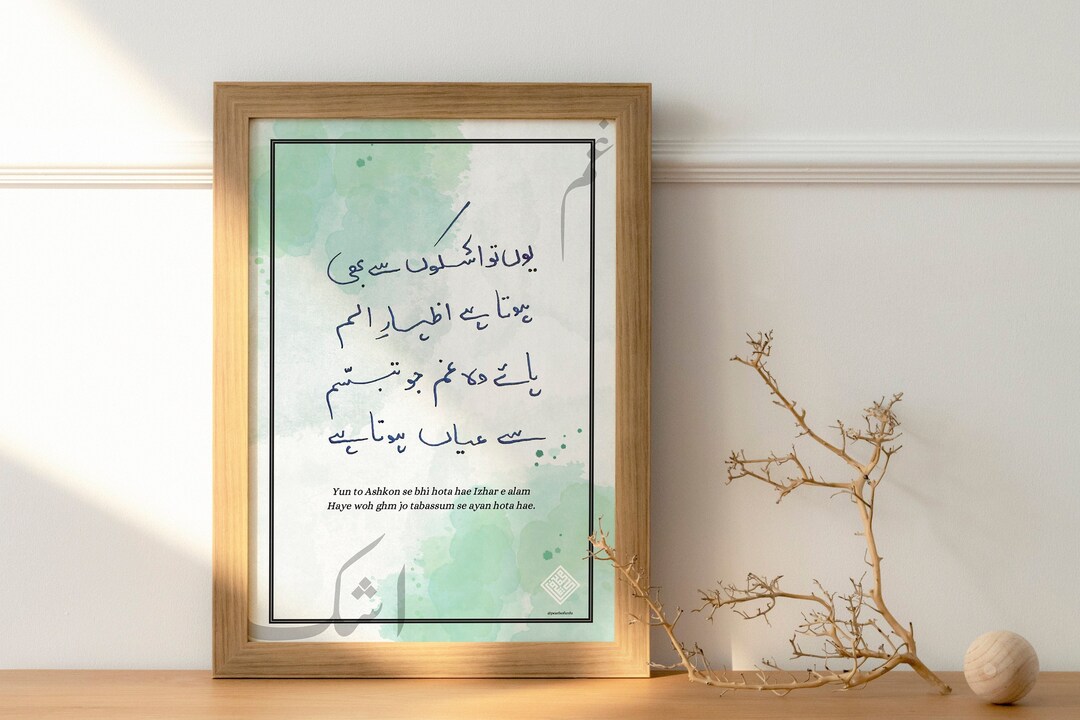 غم
یوں تو اشکوں سے بھی
ہوتا ہے اظہارِ الم
ہائے وہ غم جو تبسّم
سے عیاں ہوتا ہے
Yun to Ashkon se bhi hota hae Izhar e alam
Haye woh ghm jo tabassum se ayan hota hae.
اشک